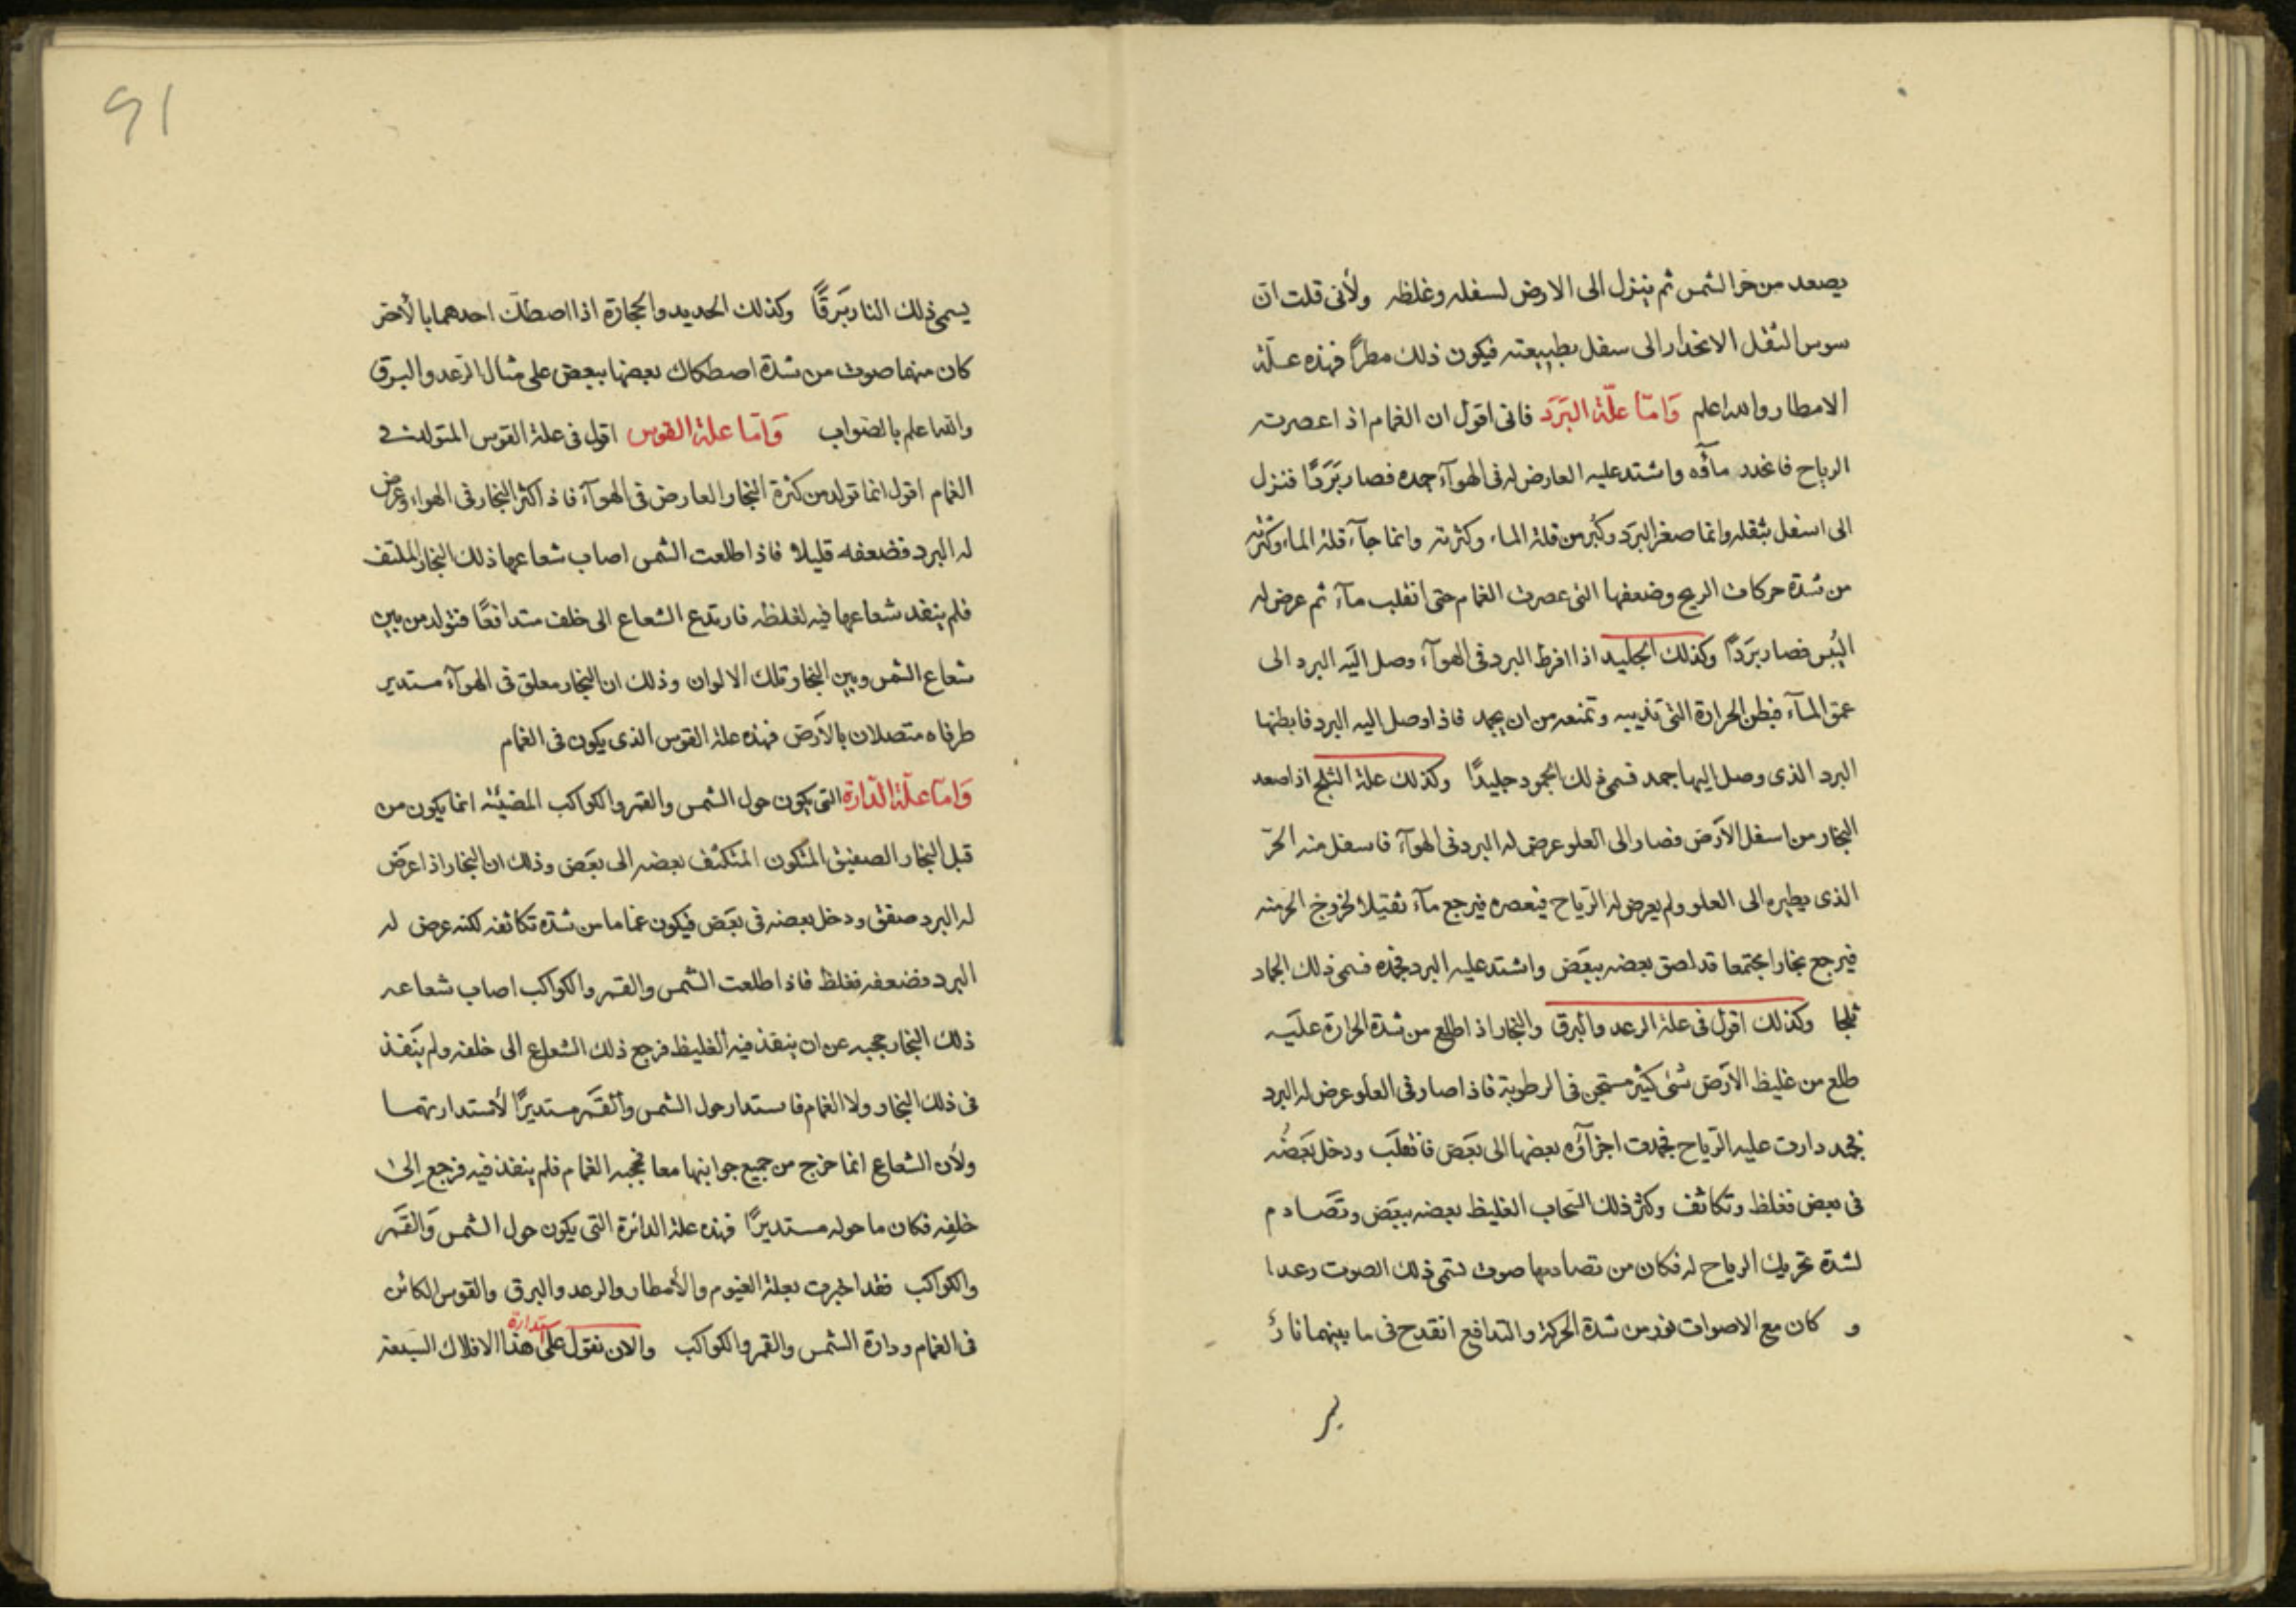 يصعد من حر الشمس ثم ينزل الى الارض لسفله وغلظه ولأنى قلت ان
سوس الثقل الانحدار الى سفل بطبيعته فيكون ذلك مطرًا فهذه علة
الامطار والله اعلم وَامّا علّة البَرَد فانى اقول ان الغمام اذ اعصرت
الرياح فانحدر مآؤه واشتد عليه العارض له فى الهوآء جمده فصار بَرَدًا فنزل
الى اسفل بثقله وانما صغر البرَد وكبُر من قلة الماء وكثرته وانما جآء قلة الماء وكثرته
من شدة حركات الريح وضعفها التى عصرت الغمام حتى انقلب مآء ثم عرض له
اليُبس فصار بَرَدًا وكذلك الجليد اذا افرط البرد فى الهوآء وصل اليَه البرد الى
عمق المآء فبطن الحرارة التى تذيبه وتمنعه من ان يجمد فاذا وصل اليه البرد فابطنها
البرد الذى وصل اليها جمد فسمى ذلك الجمود جليدًا وكذلك علة الثلج اذا صعد
البخار من اسفل الأرَض فصار الى العلو عرض له البرد فى الهوآء فاسفل منه الحرّ
الذى يطيره الى العلو ولم يعرض له الرّياح فيعصره فيرجع مآء ثقيلا لخروج الحر منه
فيرجع بخارا مجتمعا قد لصق بعضه ببعَض واشتد عليه البرد فجمده فسمى ذلك الجماد
ثلجا وكذلك اقول فى علة الرعد والبرق والبخار اذ اطلع من شدة الحرارة عليَه
طلع من غليظ الأرَض شىٰ كثير مستجن فى الرطوبة فاذا صار فى العلو عرض له البرد
فجمد دارت عليه الرّياح فجمدت اجزآؤه بعضها الى بعَض فانقلَب ودخل بَعَضُه
فى بعض فغلظ وتكاثف وكثر ذلك السّحاب الغليظ بعضه ببعَض وتصَادم
لشدة تحريك الرياح له فكان من تصادمها صوت لسمى ذلك الصوت رعدا
و كان مع الاصوات نور من شدة الحركة والتدافع انقدح فى ما بينهما نارٌ
91
يسمى ذلك النار بَرقًا وكذلك الحديد والحجارة اذا اصطكت احدهما بالأخر
كان منهما صوت من شدة اصطكاك بعضها ببعض على مثال الرّعد والبرق
والله اعلم بالصّواب وَامّا علة القوس اقول فى علة القوس المتولد فى
الغمام اقول انما تولد من كثرة البخار العارض فى الهوآء فاذ اكثر البخار فى الهواء وعرض
له البرد فضعفه قليلا فاذا طلعت الشمس اصاب شعاعها ذلك البخار الملتف
فلم ينفد شعاعها فيه لغلظه فارتدع الشعاع الى خلف متدافعًا فتولد من بين
شعاع الشمس وبين البخار تلك الالوان وذلك ان البخار معلق فى الهوآء مستدير
طرفاه متصلان بالأرَض فهذه علة القوس الذى يكون فى الغمام
وَامّا علّة الدّارة التى يكون حول الشمس والقمر والكواكب المضيئة انما يكون من
قبل البخار الصفيق المتكون المتكثف بعضه الى بعَض وذلك ان البخار اذ اعرَض
له البرد صفق ودخل بعضه فى بعَض فيكون غماما من شدّة تكاثفه لكنه عرض له
البرد فضعفه فغلظ فاذا طلعت الشمس والقمر والكواكب اصاب شعاعه
ذلك البخار حجبه عن ان ينفذ فيه الغليظ فرجع ذلك الشعاع الى خلفه ولم ينَفذ
فى ذلك البخار ولا الغمام فاستدار حول الشمس والقَمر مستديرًا لأستدارتهما
ولأن الشعاع انما خرج من جميع جوانبها معا فحجبه الغمام فلم ينفذ فيه فرجع إلىٰ
خلفِه فكان ما حوله مستديرًا فهذه علة الدائرة التى يكون حول الشمس وَالقَمر
والكواكب فقد اخبرت بعلة الغيوم والأمطار والرعد والبرق والقوس الكائن
فى الغمام ودارة الشمس والقمر والكواكب والان نقول على استدارة هذا الافلاك السَبعة